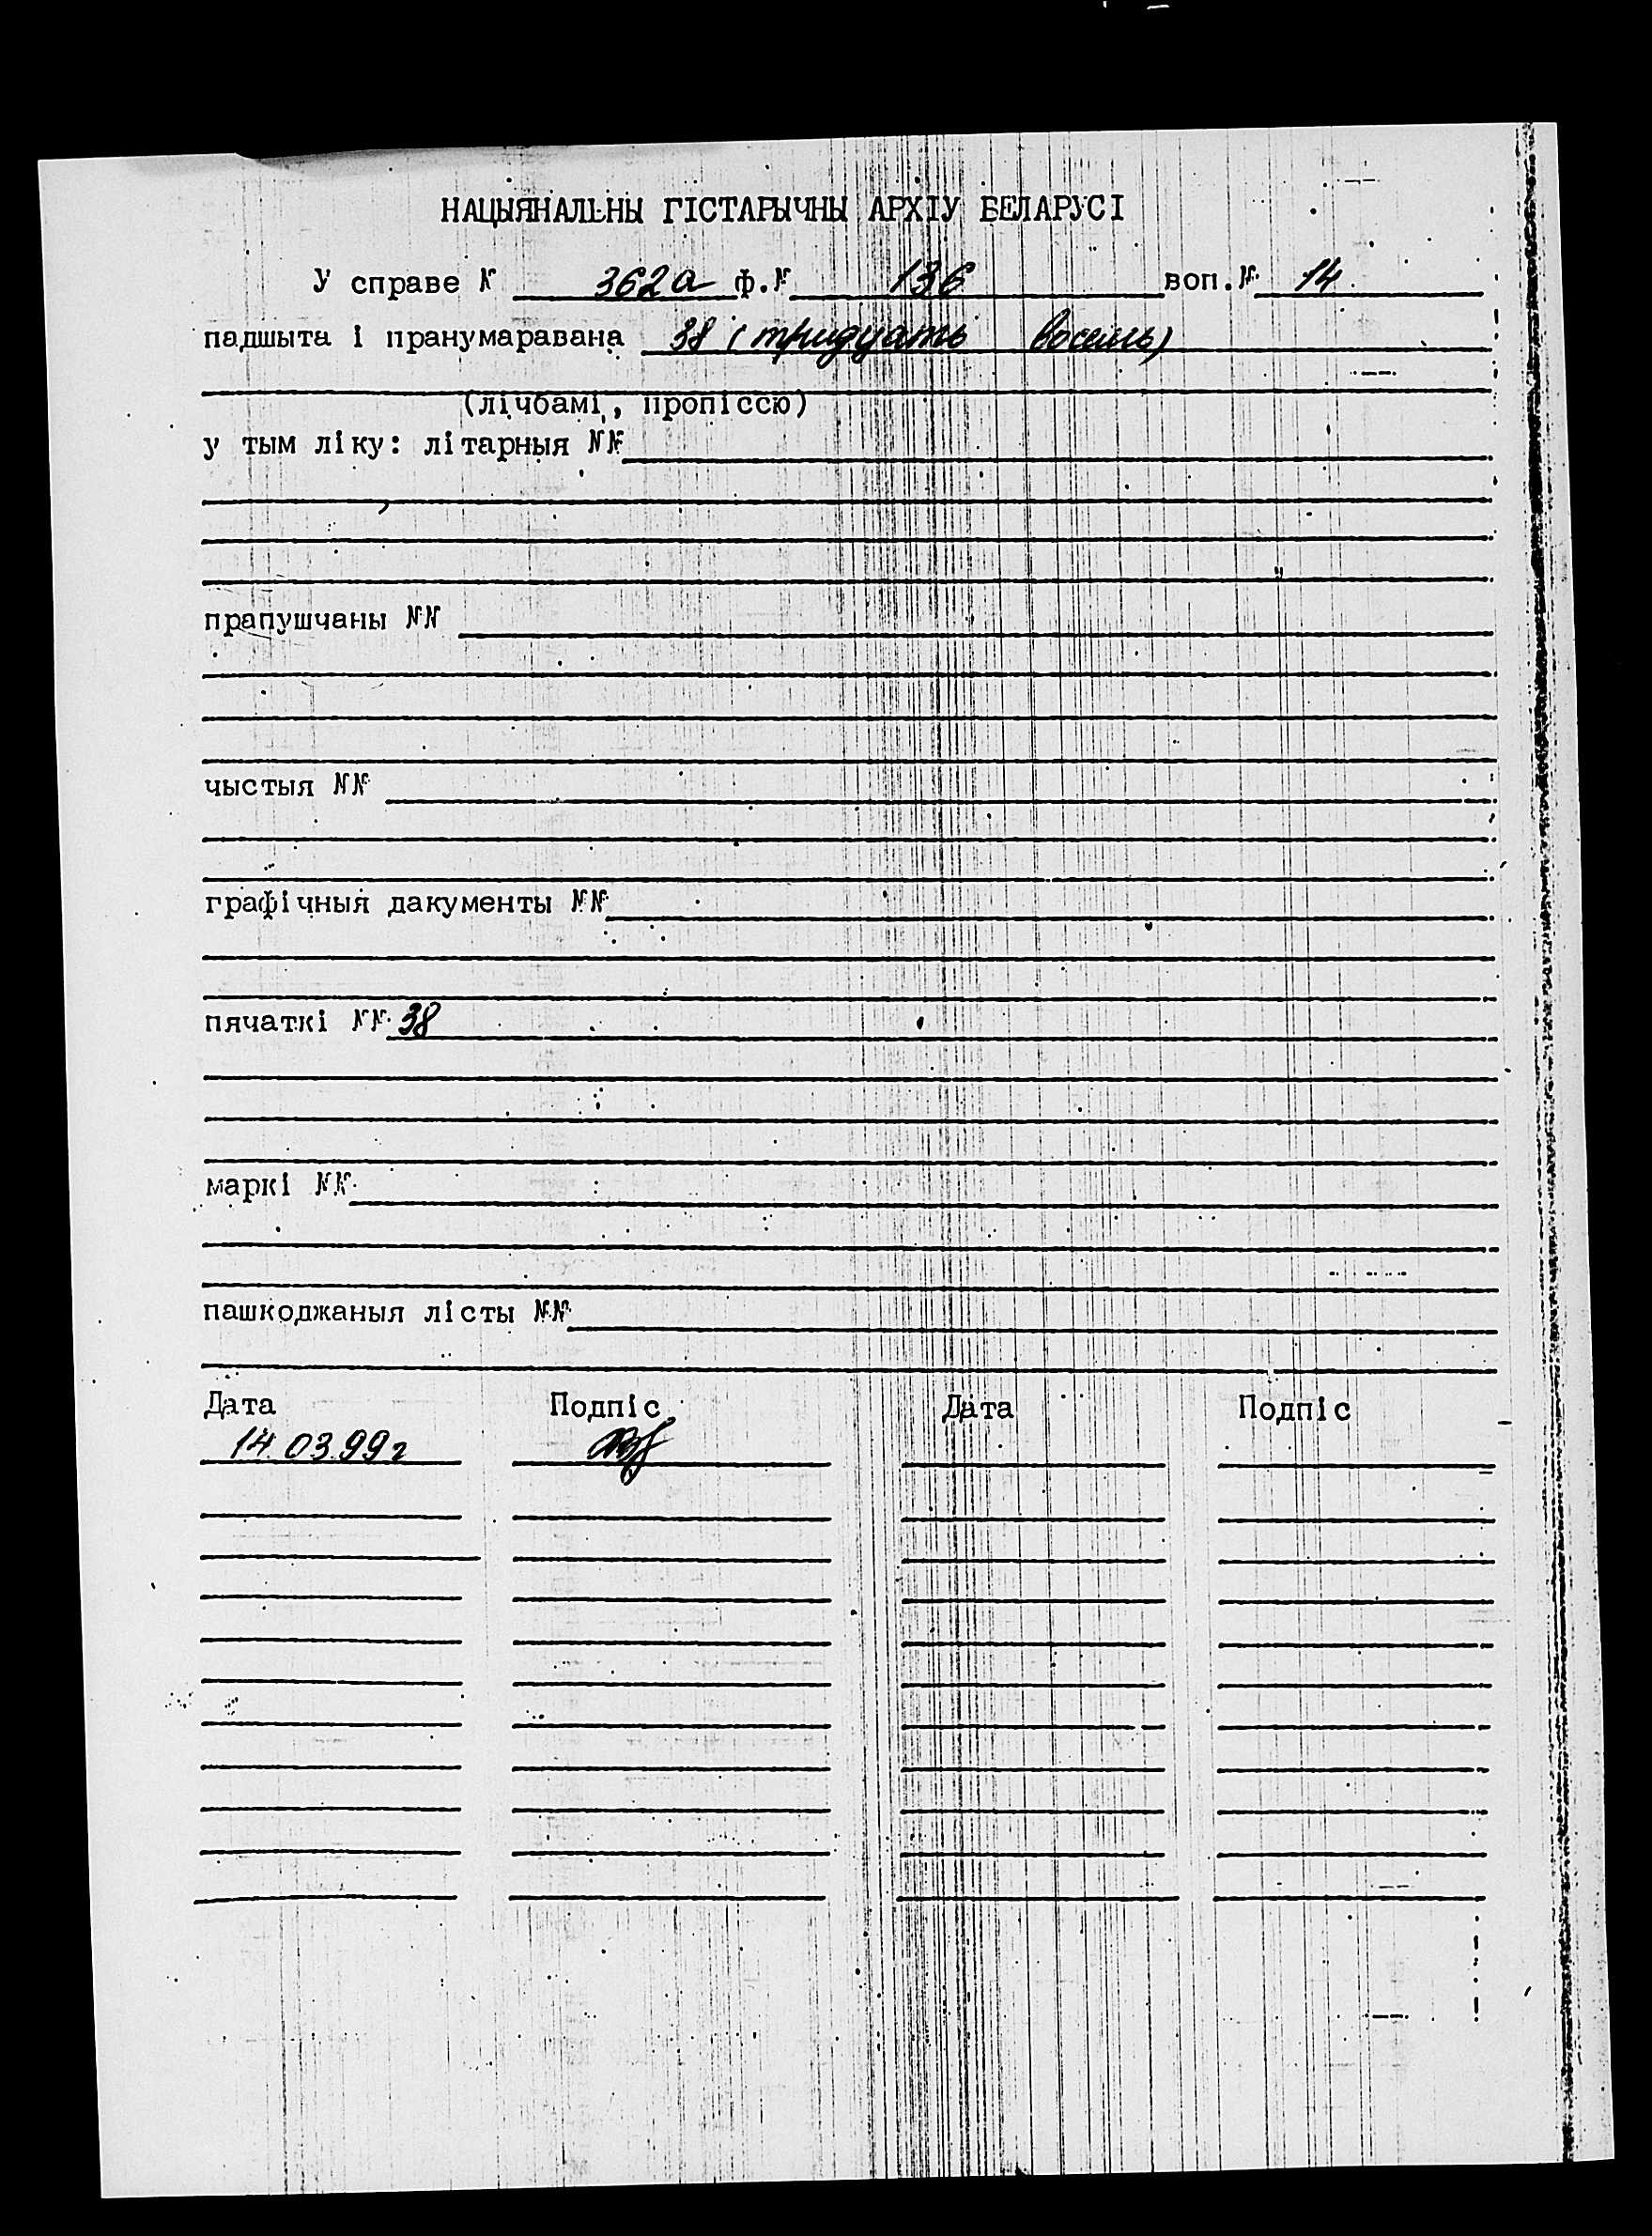 НАЦЫЯНАЛЬНЫ ГІСТАРЫЧНЫ АРХІУ БЕЛАРУСІ
У справе № 362а ф.№ 136 воп.№ 14
падшыта і пранумаравана 38 (тридцать восемь)
(лічбамі, пропіссю)
у тым ліку: літарныя №№
прапушчаны №№
чыстыя №№
графічныя дакументы №№
пячаткі №№ 38
маркі №№
пашкоджаныя лісты №№
Дата Подпіс Дата Подпіс
14.03.99г